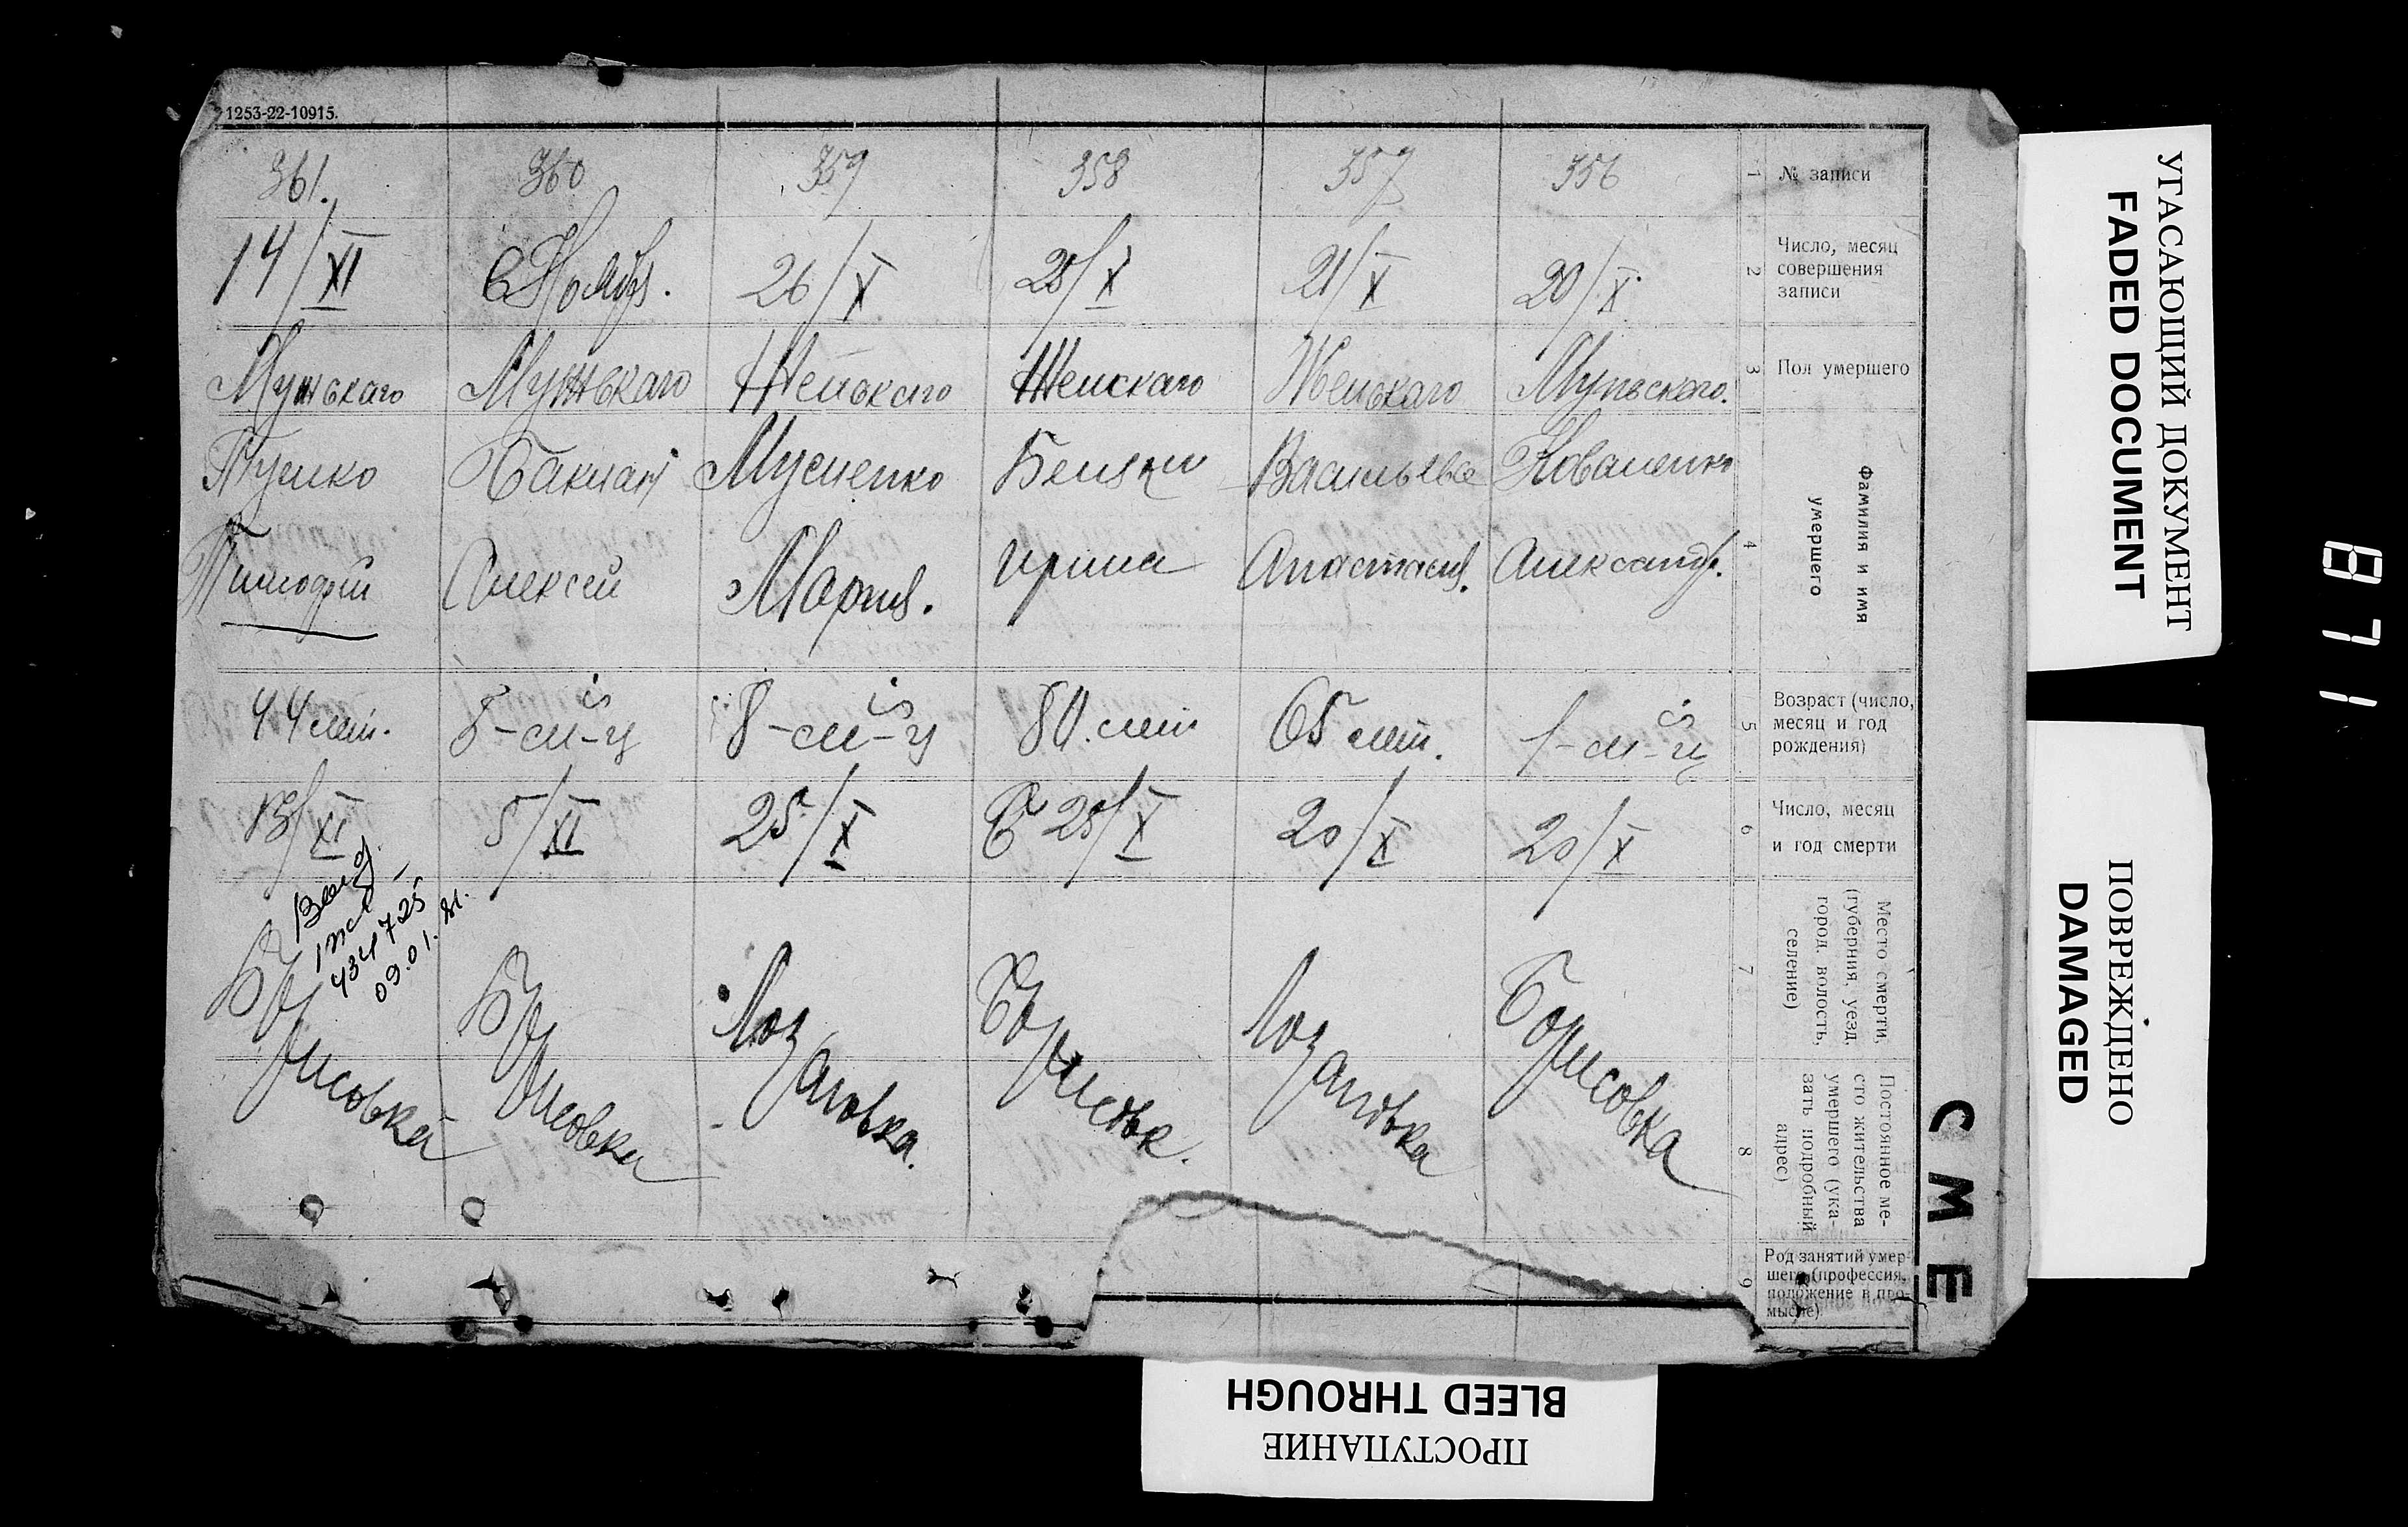 1253-22-10915.
361. 360 359 358 357 356 1 № записи
14/XI 6 Ноября. 26/X 25/X 21/X 20/X 2 Число, месяц
совершения
записи
Мужскаго Мужскаго Женскаго Женскаго Женскаго Мужскаго. 3 Пол умершего
Мусиенко Васильева Коваленко 4 Фамилия и имя
умершего
Тимофей Алексей Мария. Ирина Анастасия. Александр.
44 лет. 8-м-ц 80. лет 65 лет. 1-м-ц 5 Возраст (число,
месяц и год
рождения)
13/XI 5/XI 25/X 25/X 20/X 20/X 6 Число, месяц
и год смерти
434725
09.01.
7 Место смерти,
(губерния, уезд,
город, волость,
селение)
Борисовка Борисовка Лозановка. Борисовк. Лозановка Борисовка
8 Постоянное ме-
сто жительства
умершего (ука-
зать подробный
адрес)
9 Род занятий умер-
шего (профессия,
положение в про-
мысле)
СМЕ
УГАСАЮЩИЙ ДОКУМЕНТ
FADED DOCUMENT
ПОВРЕЖДЕНО
DAMAGED
ПРОСТУПАНИЕ
BLEED THROUGH
871